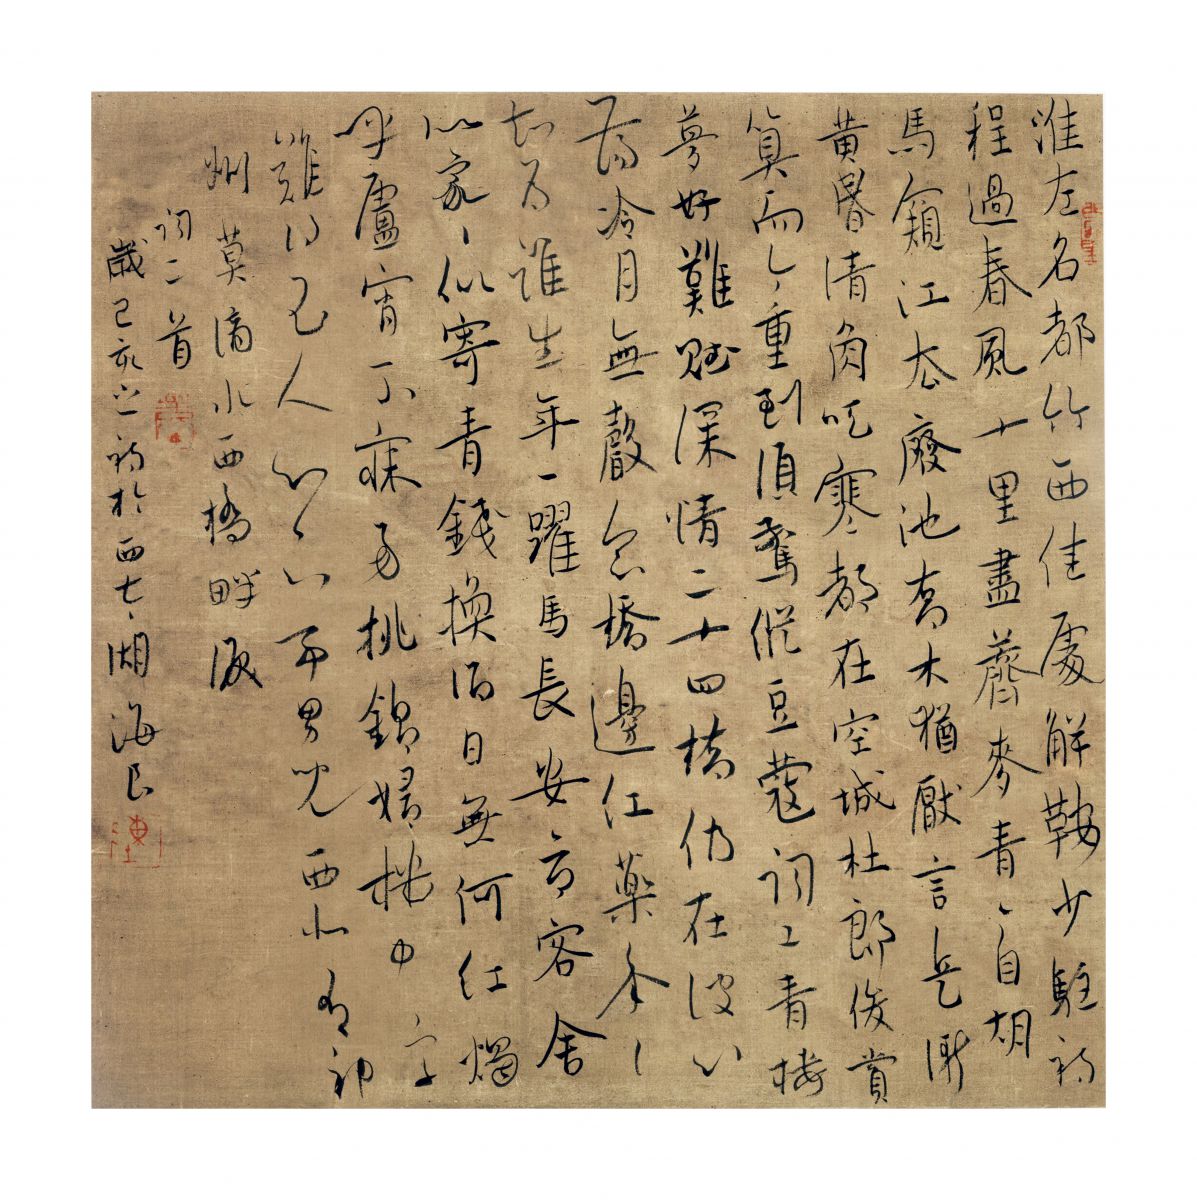 淮左名都竹西佳處解鞍少駐初
程過春風十里盡薺麥青〻自胡
馬窺江去廢池喬木猶厭言兵漸
黃昏清角吹寒都在空城杜郎俊賞
算而今重到須驚縱豆蔻詞工青樓
夢好難賦深情二十四橋仍在波心
蕩冷月無聲念橋邊紅藥年〻
知為誰生年〻躍馬長安市客舍
似家〻似寄青錢換酒日無何紅燭
呼盧宵不寐易挑錦婦機中字
難得玉人心下事男兒西北有神
州莫滴水西橋畔淚
詞二首
歲己亥之初於西七〻湖海